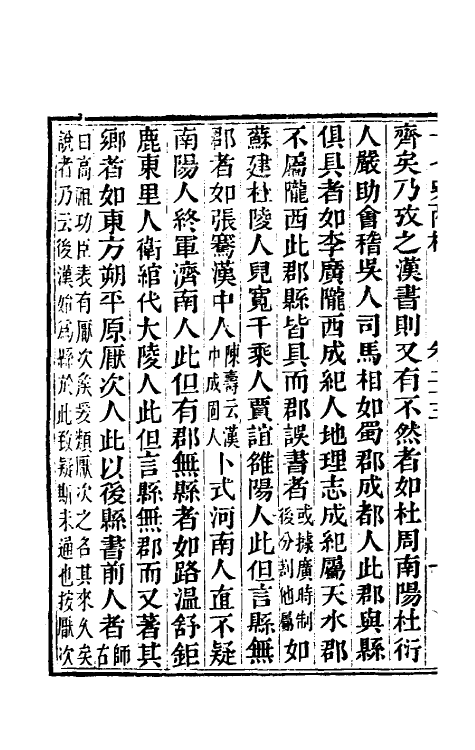 齊矣乃攷之漢書則又有不然者如杜周南陽杜衍
人嚴助會稽吳人司馬相如蜀郡成都人此郡與縣
俱具者如李廣隴西成紀人地理志成紀屬天水郡
不屬隴西此郡縣皆具而郡誤書者或據廣時制後分割他屬如
蘇建杜陵人兒寬千乘人賈誼雒陽人此但言縣無
郡者如張騫漢中人陳壽云漢中成固人卜式河南人直不疑
南陽人終軍濟南人此但有郡無縣者如路溫舒鉅
鹿東里人衞綰代大陵人此但言縣無郡而又著其
鄉者如東方朔平原厭次人此以後縣書前人者師古
曰高祖功臣表有厭次矦爰類厭次之名其來久矣
說者乃云後漢始爲縣於此致疑斯未通也按厭次